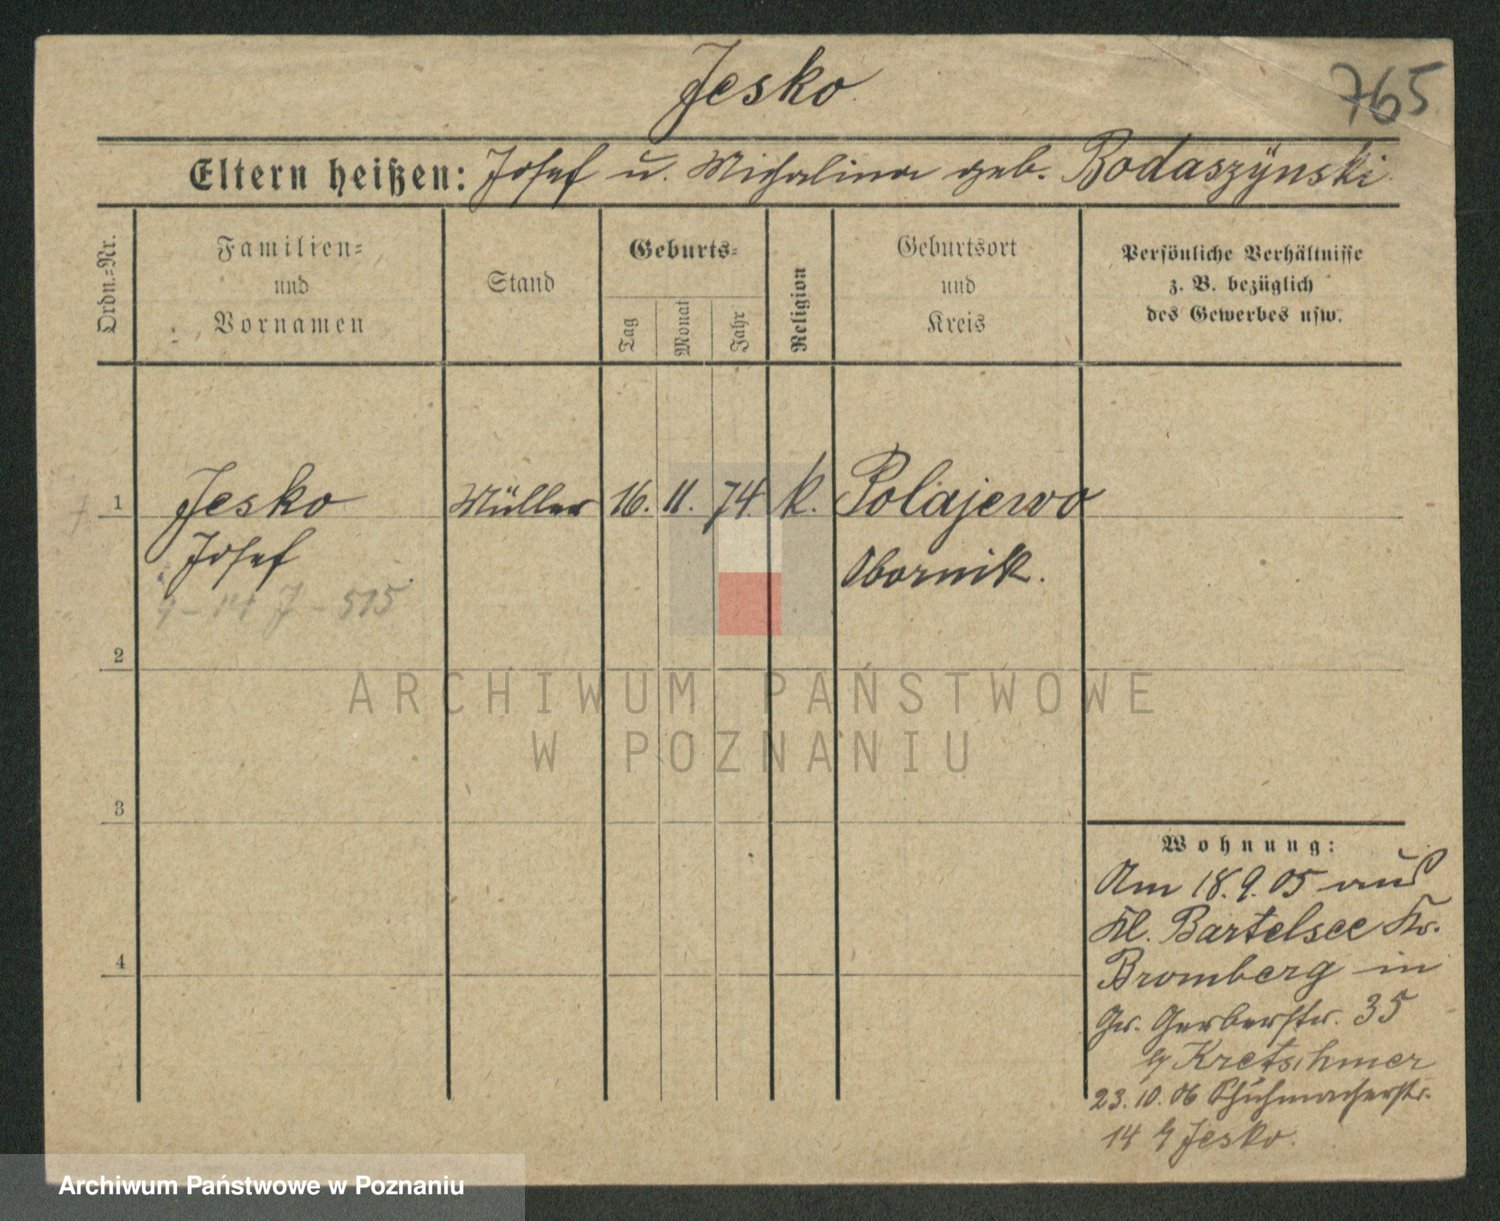 Jesko
765
Eltern heißen: Josef u. Michalina geb. Bodaszÿnski
Ordn.=Nr.
Familien=
und
Vornamen
Stand
Geburts=
Tag
Monat
Jahr
Religion
Geburtsort
und
Kreis
Persönliche Verhältnisse
z. B. bezüglich
des Gewerbes usw.
1
Jesko
Müller
16. 11. 74.
k.
Polajewo
Josef
Obornik.
J - 515
2
3
4
Wohnung:
Am 18.9.05 aus
Kl. Bartelsee Kr.
Bromberg in
Gr. Gerberstr. 35
Kretschmer
23.10.06 Schuhmacherstr.
14 Jesko.
ARCHIWUM PAŃSTWOWE
W POZNANIU
Archiwum Państwowe w Poznaniu